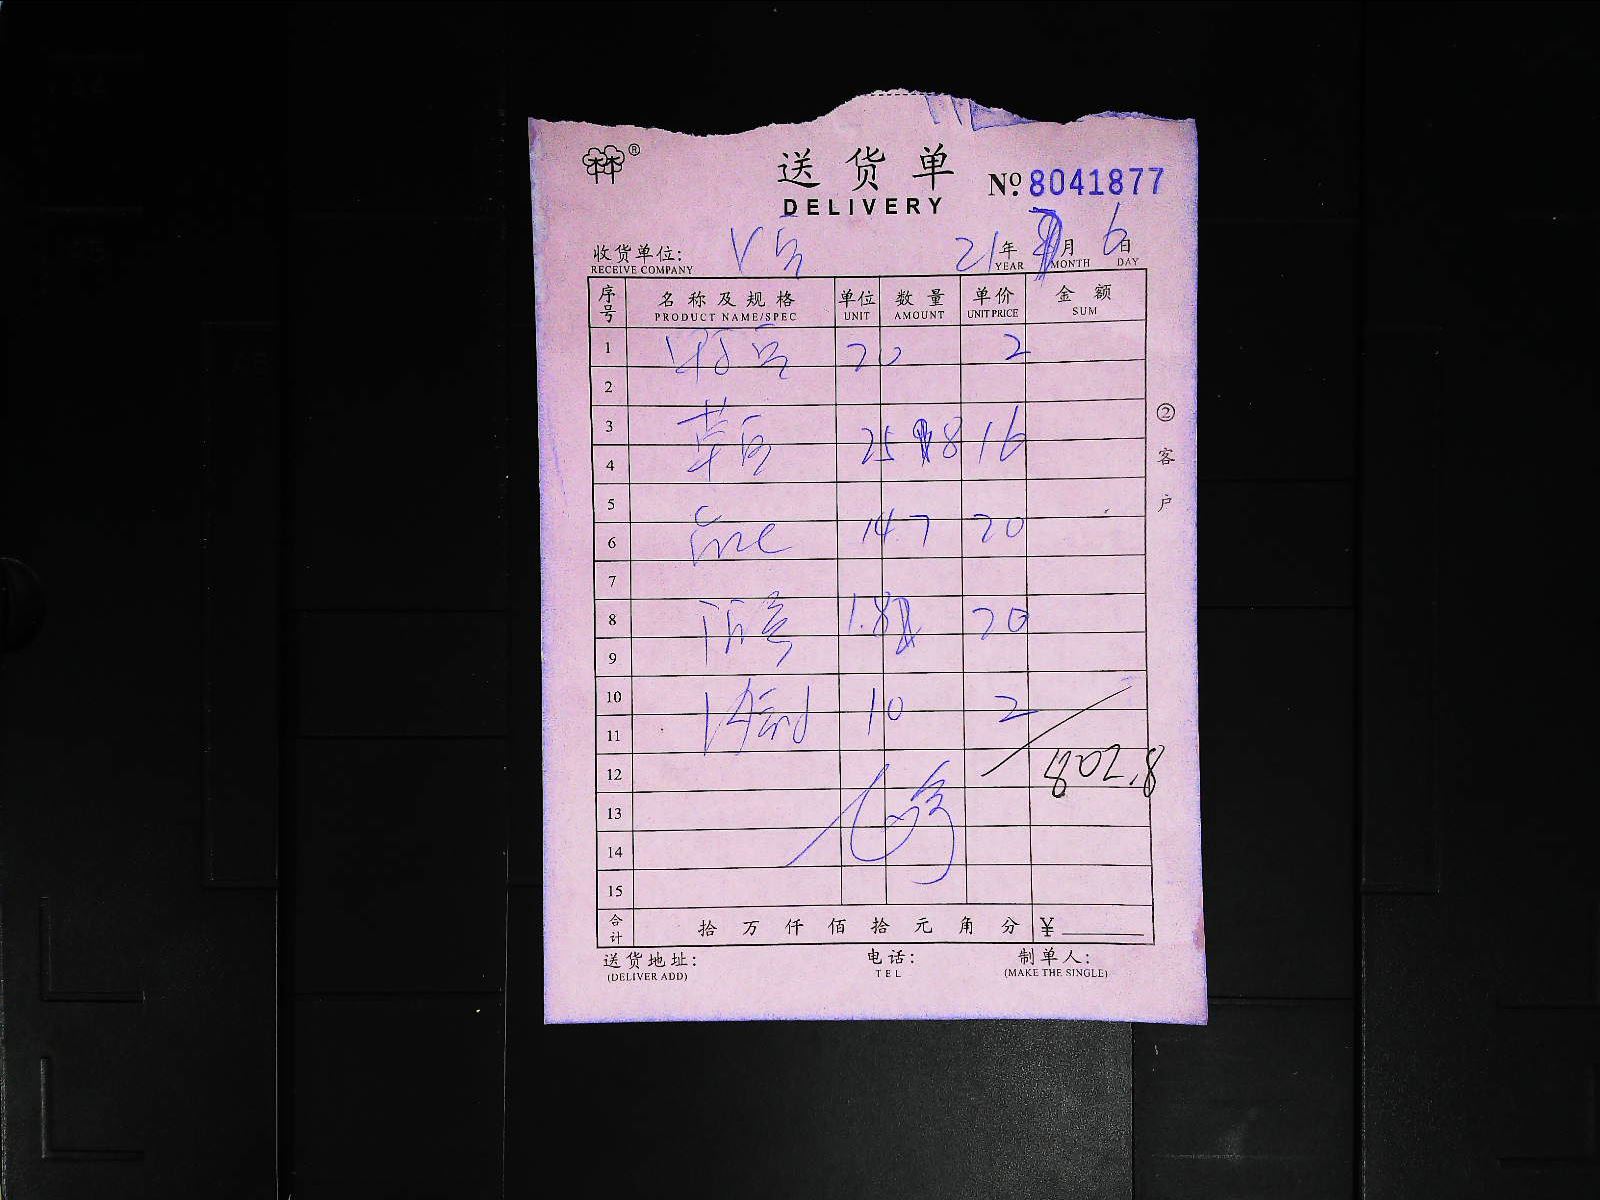 送货单
№ 8041877
DELIVERY
收货单位: 21年 月 6日
RECEIVE COMPANY YEAR MONTH DAY
序号 名称及规格 单位 数量 单价 金额
PRODUCT NAME/SPEC UNIT AMOUNT UNIT PRICE SUM
1 20 2
2
3 25 8 16
4
5
6 14.7 20
7
8 1.8 20
9
10 10 2
11
12 807.8
13
14
15
合计 拾 万 仟 佰 拾 元 角 分 ¥
② 客户
送货地址: 电话: 制单人:
(DELIVER ADD) TEL (MAKE THE SINGLE)